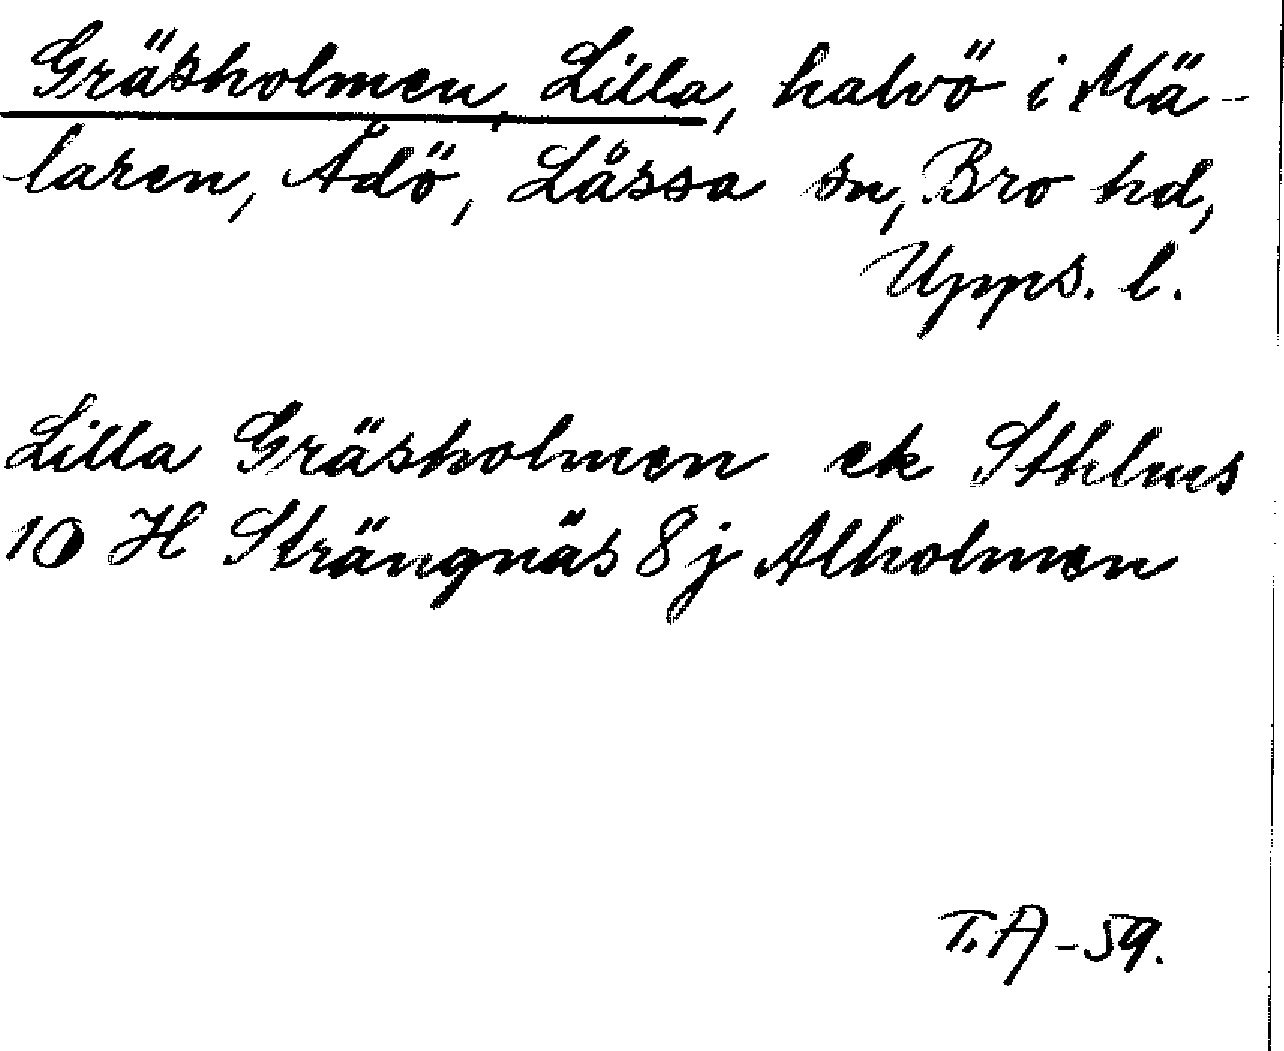 Gräsholmen, Lilla, halvö i Mä-
laren, Ådö, Låssa sn, Bro hd,
Upps. l.
Lilla Gräsholmen ek Sthlms
10 H Strängnäs 8 j Alholmen
T.A -59.